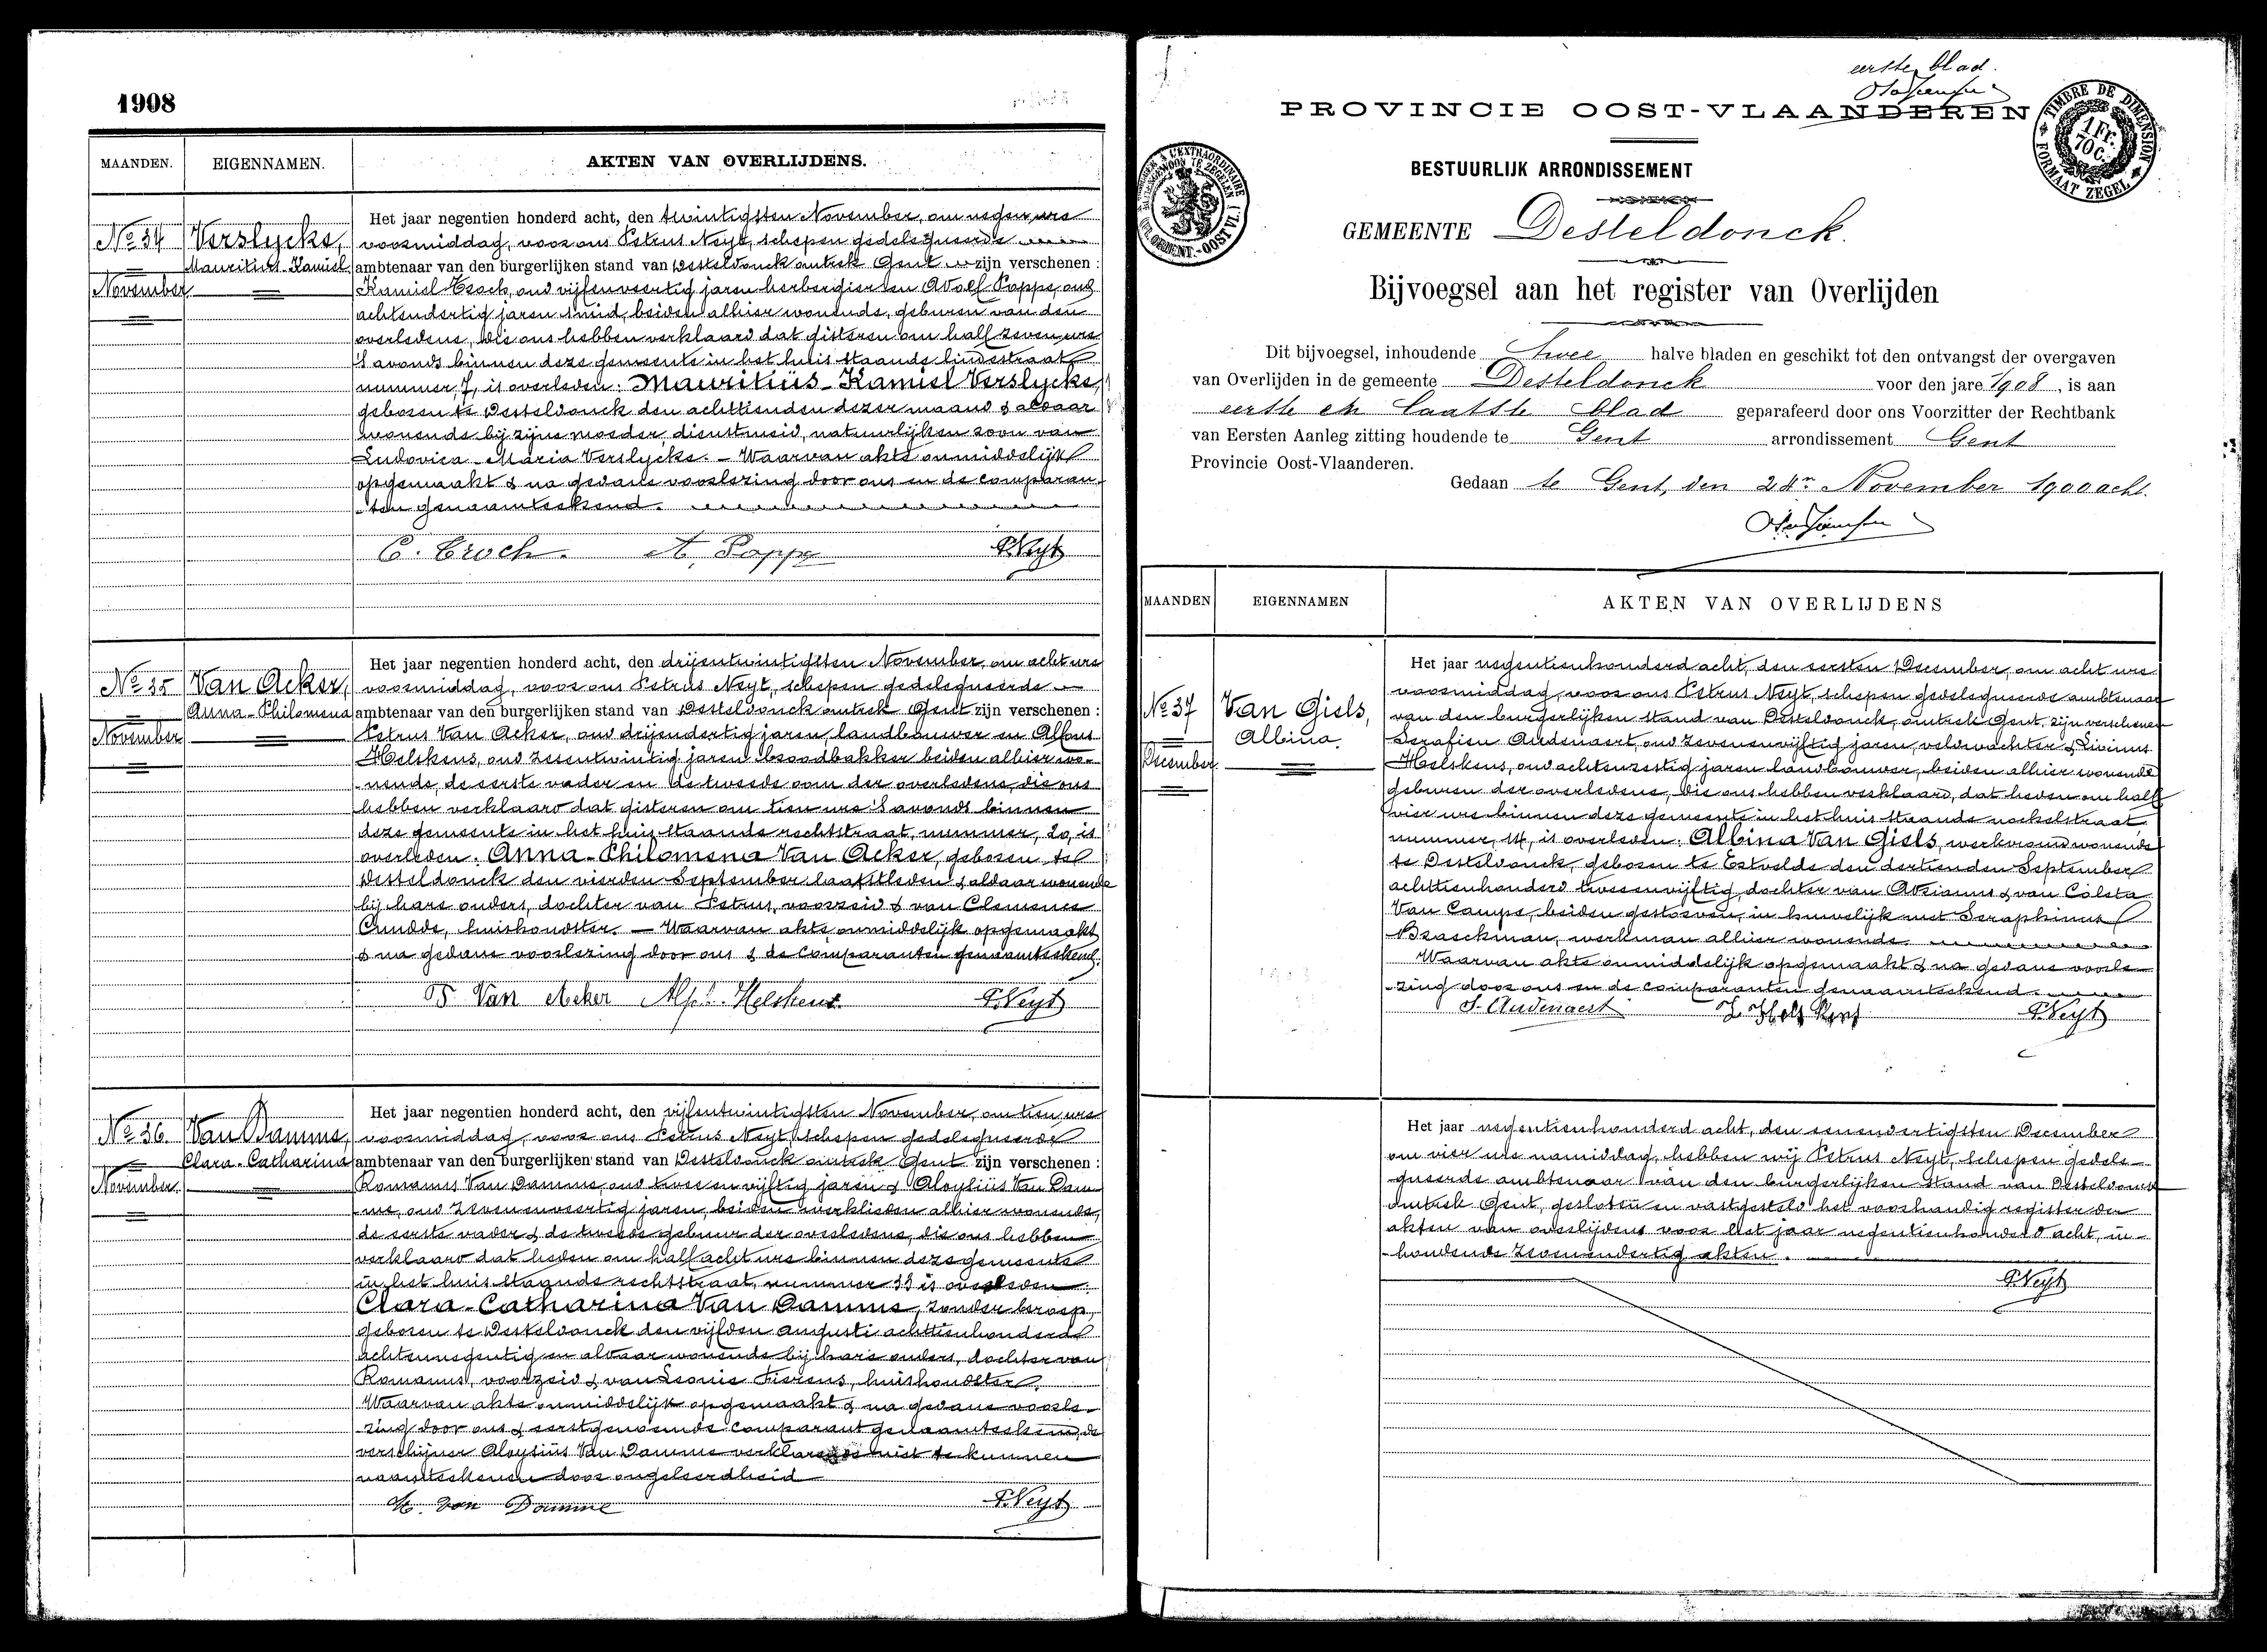 1908
MAANDEN. EIGENNAMEN. AKTEN VAN OVERLIJDENS.
No 34
November
Verslycke,
Mauritius-Kamiel
Het jaar negentien honderd acht, den twintigsten November, om negen ure
voormiddag, voor ons Petrus Neyt, schepen gedelegueerde
ambtenaar van den burgerlijken stand van Desteldonck omtrek Gent zijn verschenen :
Kamiel Croch, oud vijfenveertig jaren herbergier en Adolf Pappe, oud
achtendertig jaren smid, beiden alhier wonende, geburen van den
overledene, die ons hebben verklaard dat gisteren om half zeven ure
's avonds binnen deze gemeente in het huis staande lindestraat
nummer, 7, is overleden: Mauritius-Kamiel Verslycke,
geboren te Desteldonck den achttienden dezer maand & aldaar
wonende bij zijne moeder, dienstmeid, natuurlijken zoon van
Ludovica-Maria Verslycke. — Waarvan akte onmiddelijk
opgemaakt & na gedane voorlezing door ons en de comparan-
ten genaamteekend.
C. Croch. A. Pappe PNeyt
No 35
November
Van Acker,
Anna-Philomena
Het jaar negentien honderd acht, den drijentwintigsten November, om acht ure
voormiddag, voor ons Petrus Neyt, schepen gedelegueerde
ambtenaar van den burgerlijken stand van Desteldonck omtrek Gent zijn verschenen :
Petrus Van Acker, oud drijendertig jaren, landbouwer en Alfons
Helskens, oud zesentwintig jaren broodbakker beiden alhier wo-
nende, de eerste vader en de tweede oom der overledene, die ons
hebben verklaard dat gisteren om tien ure 's avonds binnen
deze gemeente in het huis staande rechtstraat, nummer, 20, is
overleden. Anna-Philomena Van Acker, geboren te
Desteldonck den vierden September laatstleden & aldaar wonende
bij hare ouders, dochter van Petrus, voorzeid & van Clemence
Cnudde, huishoudster. — Waarvan akte onmiddelijk opgemaakt
& na gedane voorlezing door ons & de comparanten genaamteekend.
P. Van Acker Alf. Helskens PNeyt
No 36.
November.
Van Damme,
Clara-Catharina
Het jaar negentien honderd acht, den vijfentwintigsten November, om tien ure
voormiddag, voor ons Petrus Neyt, schepen gedelegueerde
ambtenaar van den burgerlijken stand van Desteldonck omtrek Gent zijn verschenen :
Romanus Van Damme, oud twee en vijftig jaren & Aloysiüs Van Dam-
me, oud zevenenveertig jaren, beiden werklieden alhier wonende,
de eerste vader & de tweede gebuur der overledene, die ons hebben
verklaard dat heden om half acht ure binnen deze gemeente
in het huis staande rechtstraat, nummer 33 is overleden
Clara-Catharina Van Damme, zonder beroep,
geboren te Desteldonck den vijfden Augusti achttienhonderd
achtennegentig en aldaar wonende bij hare ouders, dochter van
Romanus, voorzeid & van Leonie Fierens, huishoudster.
Waarvan akte onmiddelijk opgemaakt & na gedane voorle-
zing door ons & eerstgenoemde comparant genaamteekend, de
verschijner Aloysiüs Van Damme verklarende niet te kunnen
naamteekenen door ongeleerdheid
van Damme PNeyt
eerste blad.
PROVINCIE OOST-VLAANDEREN
TIMBRE DE DIMENSION
1 Fr. 70 C.
FORMAAT ZEGEL
BESTUURLIJK ARRONDISSEMENT
GEMEENTE Desteldonck.
Bijvoegsel aan het register van Overlijden
Dit bijvoegsel, inhoudende Twee halve bladen en geschikt tot den ontvangst der overgaven
van Overlijden in de gemeente Desteldonck voor den jare 1908, is aan
eerste en laatste blad geparafeerd door ons Voorzitter der Rechtbank
van Eersten Aanleg zitting houdende te Gent arrondissement Gent
Provincie Oost-Vlaanderen.
Gedaan te Gent, den 24n November 1900 acht.
MAANDEN EIGENNAMEN AKTEN VAN OVERLIJDENS
No 37
December
Van Giels,
Albina.
Het jaar negentienhonderd acht, den eersten December, om acht ure
voormiddag, voor ons Petrus Neyt, schepen gedelegueerde ambtenaar
van den burgerlijken stand van Desteldonck, omtrek Gent, zijn verschenen
Serafien Audenaert, oud zevenenvijftig jaren, veldwachter & Livinus
Helskens, oud achtenzestig jaren landbouwer, beiden alhier wonende
geburen der overledene, die ons hebben verklaard, dat heden om half
vier ure binnen deze gemeente in het huis staande nockelstraat
nummer, 14, is overleden: Albina Van Giels, werkvrouw wonende
te Desteldonck, geboren te Estvelde den dertienden September
achttienhonderd tweeenvijftig, dochter van Adrianus & van Coleta
Van Campe, beiden gestorven, in huwelijk met Seraphinus
Braeckman, werkman alhier wonende
Waarvan akte onmiddelijk opgemaakt & na gedane voorle-
zing door ons en de comparanten genaamteekend
S. Audenaert PNeyt
Het jaar negentienhonderd acht, den eenendertigsten December
om vier ure namiddag, hebben wij Petrus Neyt, schepen gedele-
gueerde ambtenaar van den burgerlijken stand van Desteldonck
omtrek Gent, gesloten en vastgesteld het voorhandig register der
akten van overlijdens voor het jaar negentienhonderd acht, in-
houdende zevenendertig akten.
PNeyt